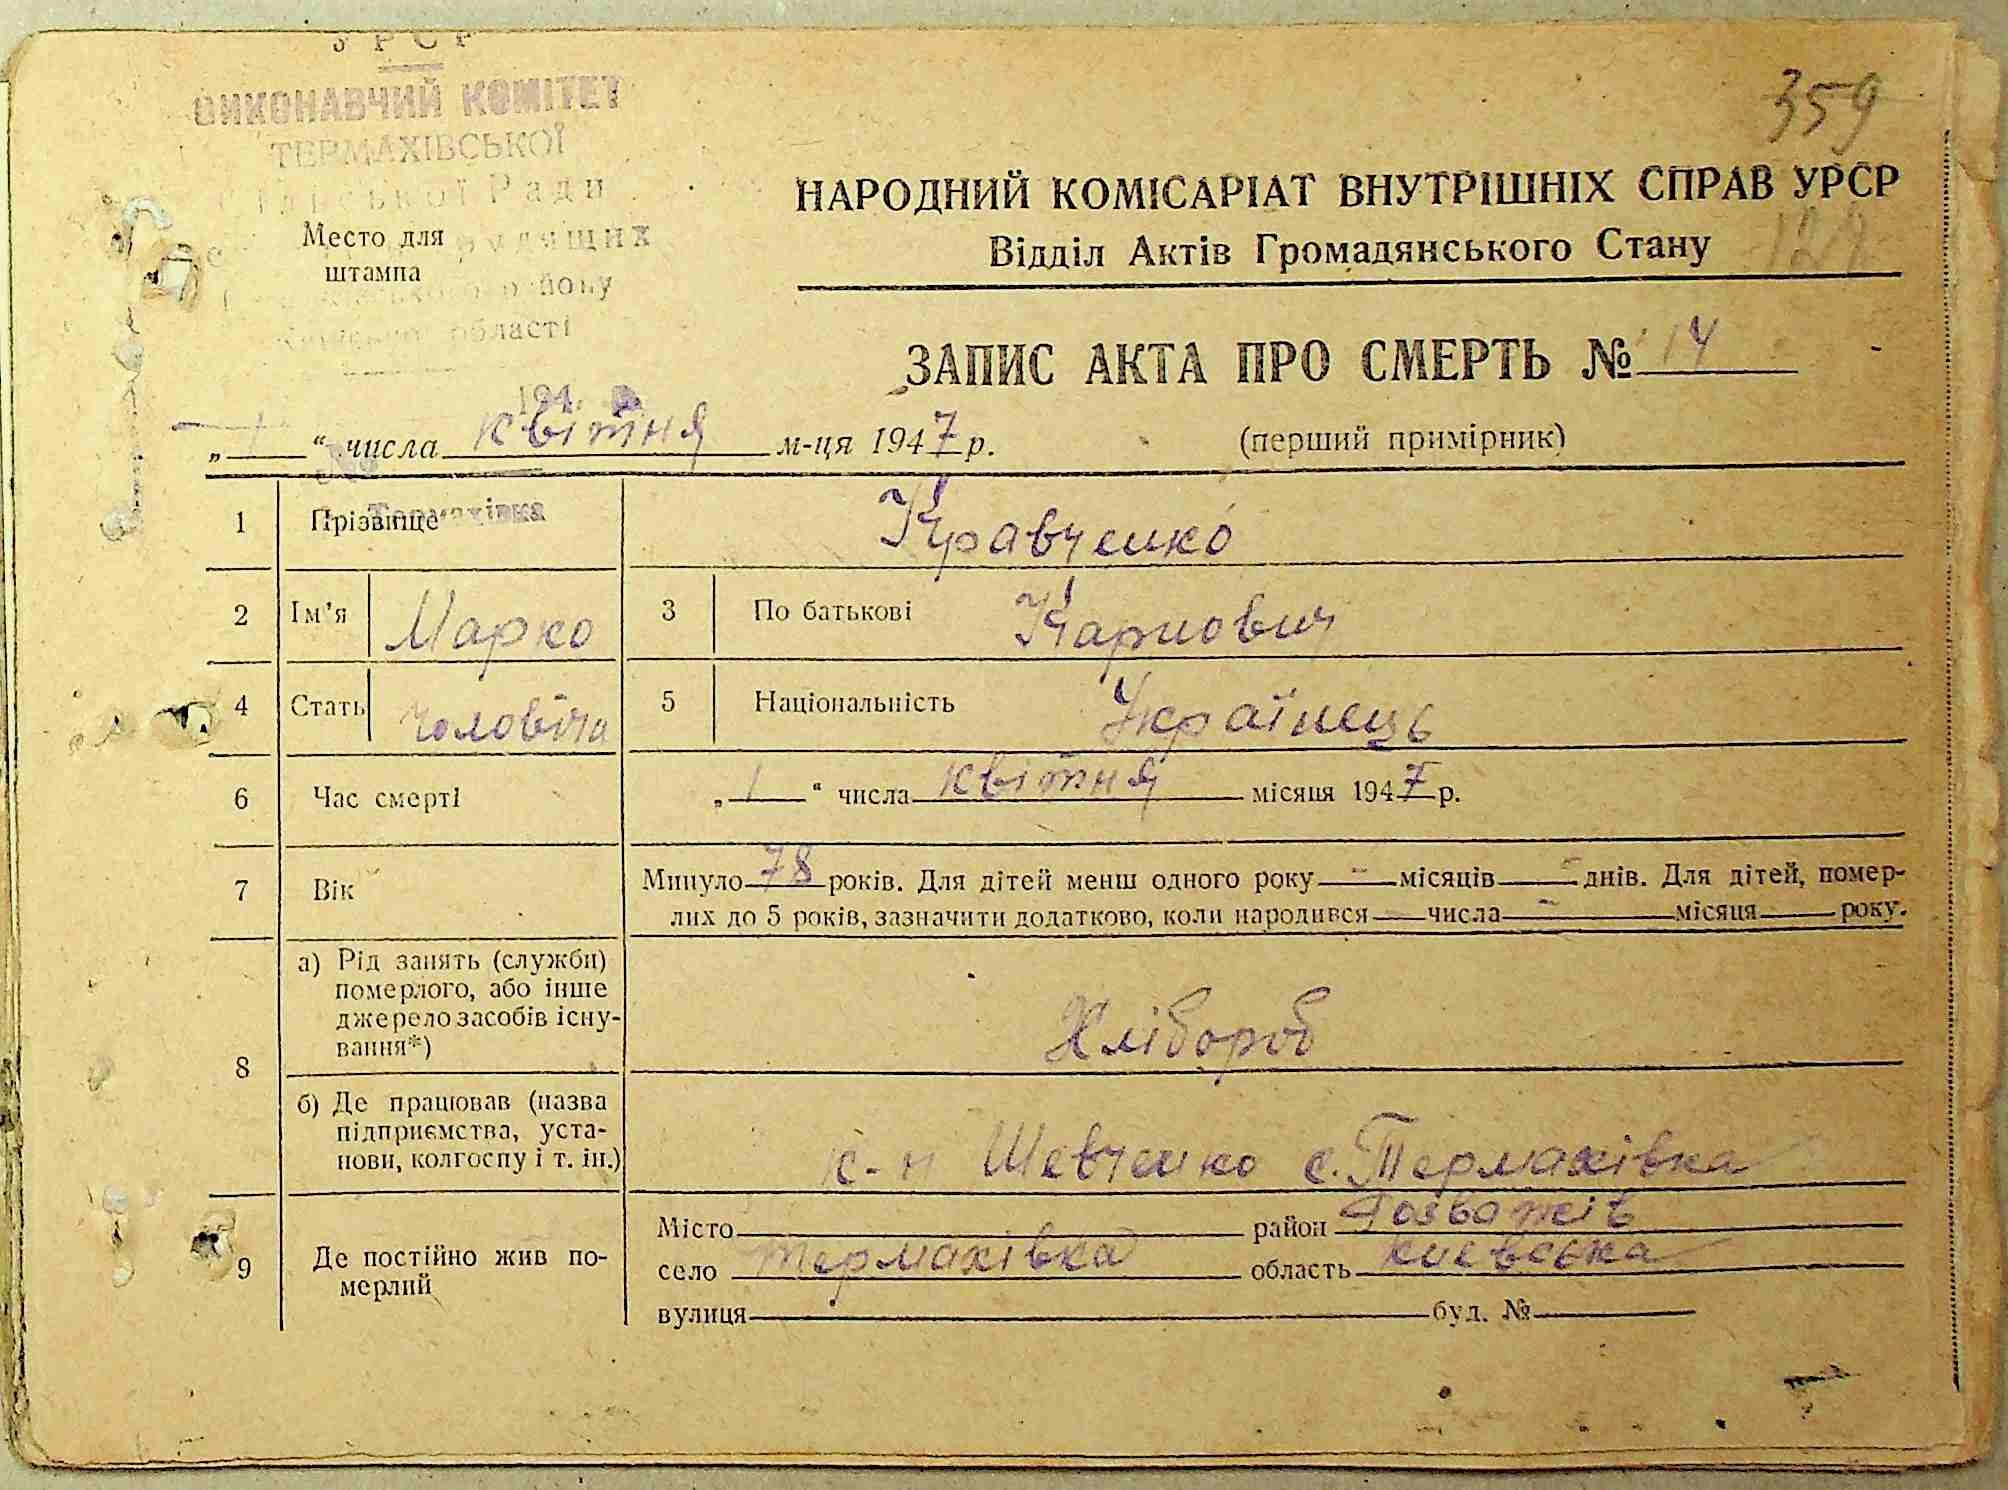 УРСР
ВИКОНАВЧИЙ КОМІТЕТ
ТЕРМАХІВСЬКОЇ
Сільської Ради
359
Место для
штампа
району
області
194
НАРОДНИЙ КОМІСАРІАТ ВНУТРІШНІХ СПРАВ УРСР
Відділ Актів Громадянського Стану
ЗАПИС АКТА ПРО СМЕРТЬ № 14
„ 1 “ числа квітня м-ця 1947 р. (перший примірник)
№
с. Термахівка
1 Прізвище Кравченко
2 Ім'я Марко 3 По батькові Карпович
4 Стать чоловіча 5 Національність Українець
6 Час смерті „ 1 “ числа квітня місяця 1947 р.
7 Вік Минуло 78 років. Для дітей менш одного року - місяців - днів. Для дітей, помер-
лих до 5 років, зазначити додатково, коли народився числа - місяця року.
8 а) Рід занять (служби)
померлого, або інше
джерело засобів існу-
вання*)
Хлібороб
б) Де працював (назва
підприємства, уста-
нови, колгоспу і т. ін.)
к-п Шевченко с. Термахівка
9 Де постійно жив по-
мерлий
Місто район Розважів
село Термахівка область Києвська
вулиця буд. №